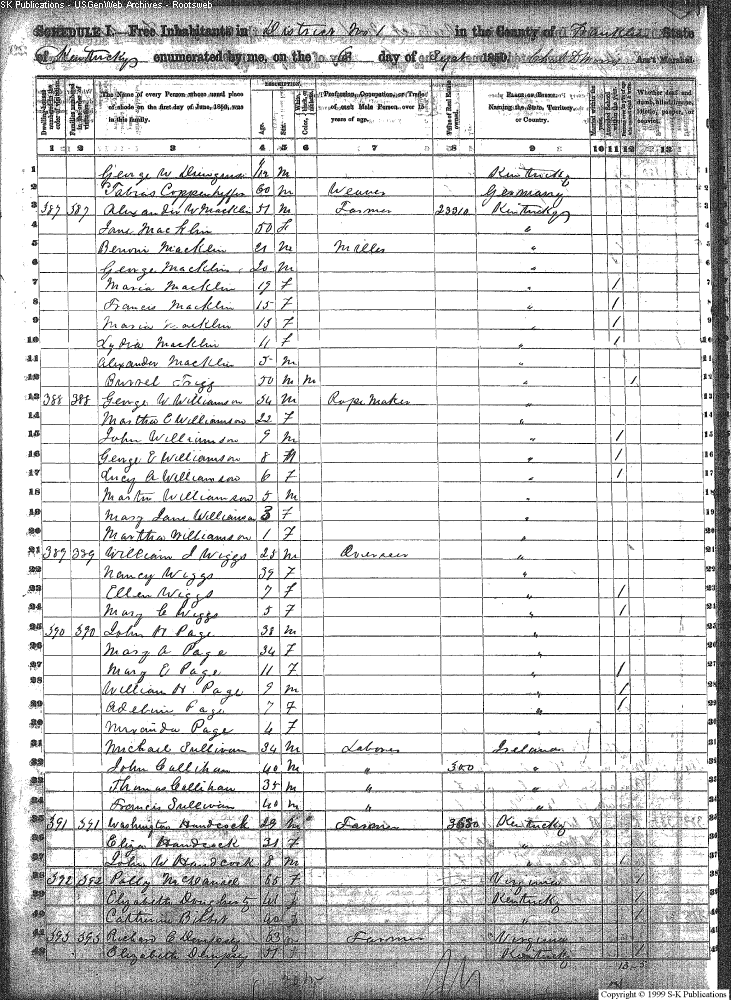 S-K Publications - USGenWeb Archives - Rootsweb
SCHEDULE I.—Free Inhabitants in District No 1 in the County of Franklin State
of Kentucky enumerated by me, on the 6 day of Sept 1850. Ass't Marshal.
Dwelling-houses numbered in the order of visitation.
Families numbered in the order of visitation.
The Name of every Person whose usual place of abode on the first day of June, 1850, was in this family.
DESCRIPTION.
Age. Sex. Color
Profession, Occupation, or Trade of each Male Person over 15 years of age.
Value of Real Estate owned.
PLACE OF BIRTH. Naming the State, Territory, or Country.
Married within the year.
Whether deaf and dumb, blind, insane, idiotic, pauper, or convict.
1 2 3 4 5 6 7 8 9 10 11 12 13
1 George W 4/12 M Kentucky 1
2 Tobias 60 M Weaver Germany 2
3 387 387 Alexander W Macklin 51 M Farmer 23310 Kentucky 3
4 Jane Macklin 50 F " 4
5 Benoni Macklin 21 M Miller " 5
6 George Macklin 20 M " 6
7 Maria Macklin 19 F " / 7
8 Francis Macklin 15 F " / 8
9 Macklin 13 F " / 9
10 Lydia Macklin 11 F " / 10
11 Alexander Macklin 5 M 11
12 Burrel Trigg 50 M M " / 12
13 388 388 George W Williamson 34 M Rope Maker " 13
14 Martha E Williamson 22 F " 14
15 John Williamson 9 M " / 15
16 George E Williamson 8 M " / 16
17 Lucy A Williamson 6 F " / 17
18 Martin Williamson 5 M " 18
19 Mary Jane Williamson 3 F " 19
20 Martha Williamson 1 F " 20
21 389 389 William J Wiggs 28 M Overseer " 21
22 Nancy Wiggs 39 F " 22
23 Ellen Wiggs 7 F " / 23
24 Mary C Wiggs 5 F " / 24
25 390 390 John H Page 38 M 25
26 Mary A Page 34 F " 26
27 Mary E Page 11 F " / 27
28 William H. Page 9 M " / 28
29 Page 7 F " / 29
30 Miranda Page 4 F " 30
31 Michael Sullivan 34 M Laborer Ireland 31
32 John Callihan 40 M " 300 " 32
33 Thomas Callihan 35 M " " 33
34 Francis Sullivan 40 M " " 34
35 391 391 Washington Handcock 29 M " Farmer 3680 Kentucky 35
36 Eliza Handcock 31 F " 36
37 John W Handcock 8 M " / 37
38 392 392 Polly McDaniel 65 F Virginia / 38
39 Elizabeth Dougherty 41 F Kentucky / 39
40 Catherine 40 F " / 40
41 393 393 Richard C Dempsey 63 M Farmer Virginia 41
42 Elizabeth Dempsey 51 F Kentucky / 42
Copyright © 1999 S-K Publications